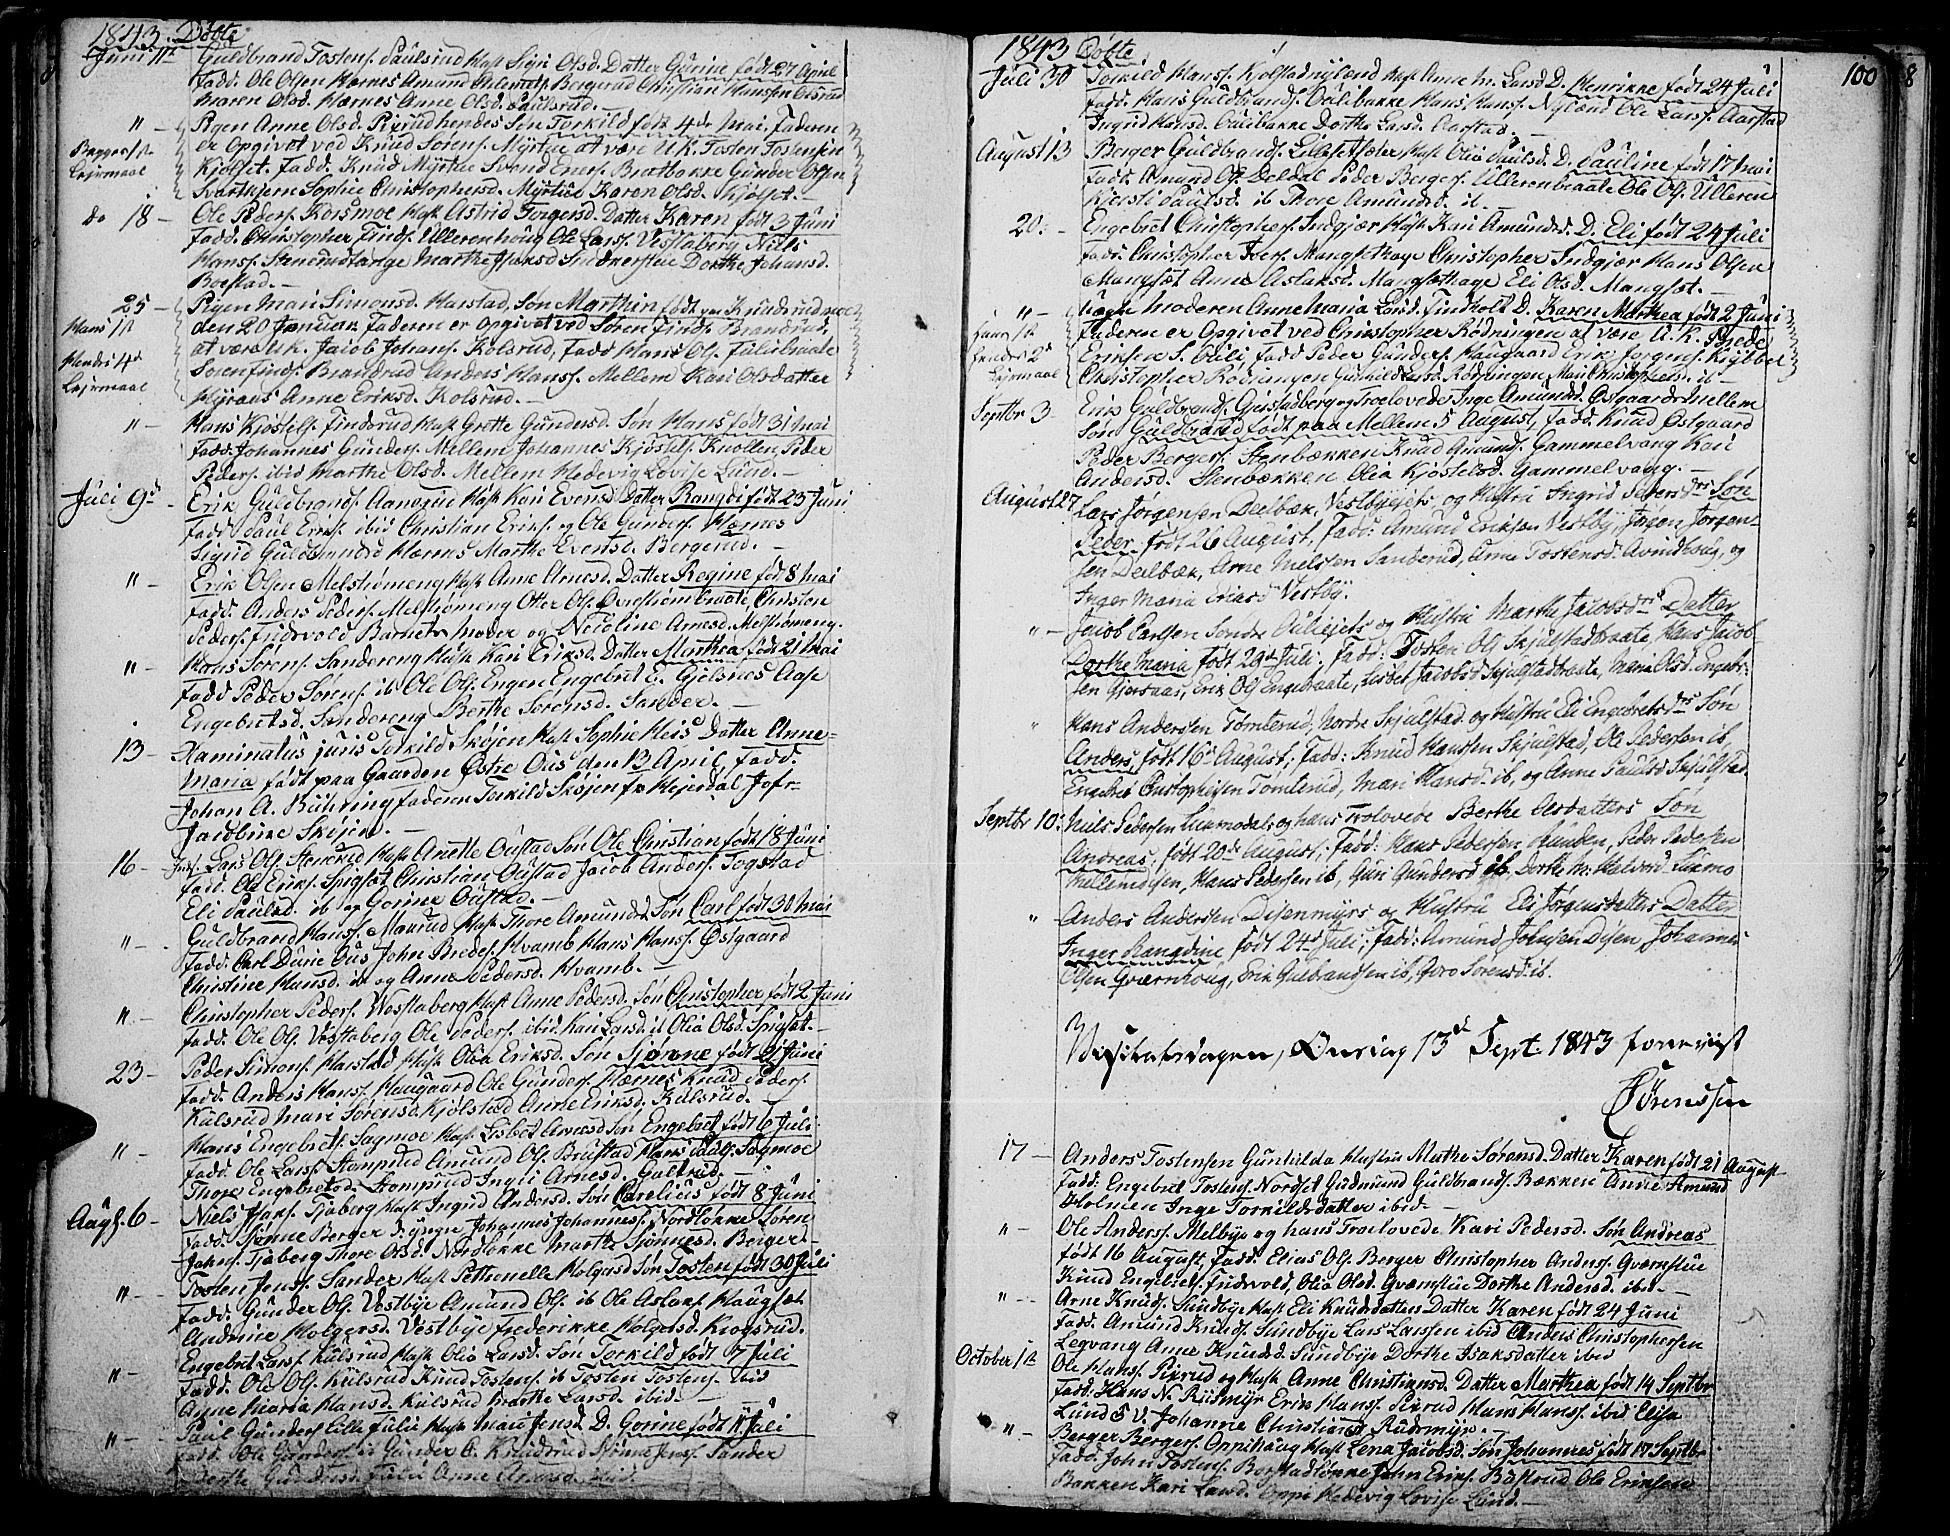 1843. Døbte
Juni 11te Guldbrand Tostens. Paulsrud Hust. Sigri Olsd. Datter Gurine født 27 April
Fadd. Ole Olsen Hærnes Amund Bergerud Christian Hanssen Olsrud
Maren Olsd. Hærnes Anne Olsd. Paulsrud.
" - Pigen Anne Olsd. Pixrud hendes Søn Torkild født 4de Mai. Faderen
er Opgivet ved Knud Sørens. Myrtue at være U.K. Tosten Tostensen
Kjølset. Fadd. Knud Myrtue Svend Eners. Bratbakke Gunder Olsen
Svartkjern Sophie Christophersd. Myrtue Karen Olsd. Kjølset.
Leiermaal
do 18 - Ole Peders. Korsmoe Hust. Astrid Torgersd. Datter Karen født 3 Juni
Fadd. Christopher Finds. Ullerenhoug Ole Larss. Vestaberg Nils
Hanss. Stenerudlarge Marthe Isaksd. Dorthe Johansd.
Boestad.
25 - Pigen Mari Simonsd. Harstad, Søn Marthin født paa Knudsrudmoe
den 20 Januar Faderen er Opgivet ved Søren Finds. Brandrud,
at være U.K. Jacob Johans. Kolsrud, Fadd. Hans Ols. Fulubraate
Soren Finds. Brandrud Anders Hanss. Mellem Kari Olsdatter
Anne Eriksd. Kolsrud.
Hans 1ste
4de
Leiermaal
" Hans Kjøstels. Findsrud Hust. Grethe Gundersd. Søn Hans født 31 Mai
Fadd. Johannes Gunders. Mellem Johannes Kjøstels. Knollen, Peder
Peders. ibid Marthe Olsd. Mellem Hedevig Lovise Lund.
Juli 9de - Erik Guldbrands. Aanerud Hust. Kari Evensd. Datter Rangdi født 23 Juni
Fadd. Paul Eriks. ibid Christian Eriks. og Ole Gunders. Hærnes
Sigrid Guldbrandsd. Hærnes Marthe Evensd. Bergerud.
" - Erik Olsen Melstrømeng Hust. Anne Arnesd. Datter Regine født 8 Mai
Fadd. Anders Peders. Melstrømeng Otter Ols. Christen
Peders. Fridsvold Barnets Moder og Nicoline Arnesd. Melstrømeng.
" - Hans Sorens. Sandereng Hust. Kari Eriksd. Datter Marthea født 21 Mai
Fadd. Peder Sørens. ib Ole Ols. Engen Engebret E. Gjelsnes Aase
Engebretsd. Sandereng Berthe Sorensd. Sander.
13 - Examinatus juris Torkild Skøjen Hust. Sophie Heis Datter Anne
Maria født paa Gaarden Østre Ous den 13 April, Fadd.
Johan A. Bühring Faderen Torkild Skøjen fr. Hejerdal Jofr.
Jacobine Skøjen.
16 - Lars Ols. Stenerud Hust. Anette Oustad Søn Ole Christian født 18 Juni
Fadd. Ole Eriks. Spigset Christian Oustad Jacob Anders. Togstad
Eli Paulsd. ib og Gorine Oustad.
" - Guldbrand Hanss. Maurud Hust. Thore Amundsd. Søn Carl født 30 Mai
Fadd. Carl Dune Ous John Brede Hvamb Hans Hanss. Østgaard
Christine Hansd. ib og Anne Pedersd. Hvamb.
" - Christopher Peders. Vestaberg Hust. Anne Pedersd. Søn Christopher født 2 Juni
Fadd. Ole Ols. Vestaberg Ole Peders. ibid. Kari Larsd. ib Olia Olsd. Spigset.
23 - Peder Simons. Harstad Hust. Olia Eriksd. Søn Sjønne født 21 Juni
Fadd. Anders Hanss. Haugaard Ole Gunders. Hærnes Knud Peders.
Kulsrud Mari Sørensd. Kjølstad Anne Eriksd. Kulsrud.
" - Hans Engebrets. Sagmoe Hust. Lisbet Arnesd. Søn Engebret født 6 Juli
Fadd. Ole Larss. Stomprud Amund Ols. Brustad Hans Sagmoe
Thore Engebretsd. Stomprud Ingli Arnesd. Gulsrud.
Augs. 6 - Niels Isaks. Tjaberg Hust. Ingrid Andersd. Søn Carelius født 8 Juni
Fadd. Sjønne Berger d. yngre Johannes Johanness. Nordløkke Søren
Johns. Tjaberg Thore Olsd. Nordløkke Marthe Sjønnesd. Berger.
" - Tosten Jens. Sander Hust. Pethronelle Holgersd. Søn Tosten født 30 Juli
Fadd. Gunder Ols. Vestbye Amund Ols. ib Ole Aslaks. Haugset
Andrine Holgersd. Vestbye Frederikke Holgersd. Krogsrud.
" - Engebret Larss. Kulsrud Hust. Olia Larsd. Søn Torkild født 7 Juli
Fadd. Ole Ols. Kulsrud Knud Tostens. ib Tosten Tostens. ibid
Anne Maria Hansd. Kulsrud Larsd. ibid.
" - Paul Gunders. Lille Fulu Hust. Mari Jensd. D. Gorine født 11 Juli
Fadd. Ole Gunders. ib Gunder O. Knudsrud Sjønne Jens. Sander
Berthe Gundersd. Fulu Anne ibid.
1843 Døbte
100
Juli 30 Torkild Hanss. Kjølstadnylænd Hust. Anne M. Larsd. D. Henrikke født 24 Juli
Fadd. Hans Guldbrands. Oulibakke Hans Hans. Nylænd Ole Larss. Aarstad
Ingrid Hansd. Oulibakke Dorthe Larsd. Aarstad.
August 13 Berger Guldbrands. Lillesetsæter Hust. Olia Paulsd. D. Pauline født 17 Mai
Fadd. Amund Ols. Deldal Peder Bergers. Ullerenbraate Ole Ols. Ulleren
Kjersti Paulsd. ib Thore Amundsd. ib
20. - Engebret Christophers. Indgjær Hust. Kari Amundsd. D. Eli født 24 Juli
Fadd. Christopher Ivers. Mangsethage Christopher Indgjær Hans Olsen
Mangset Anne Aslaksd. Mangsethage Eli Olsd. Mangset.
" - Moderen Anne Maria Larsd. Findholt D. Karen Marthea født 2 Juni
Faderen er Opgivet ved Christopher Rødningen at være U.K. Brede
Eriksen S. Ouli, Fadd. Peder Gunders. Haugaard Erik Jorgens. Kigebøl
Christopher Rødningen Gunhild Larsd. Rødningen Mari Christophersd. ib
Leiermaal
Septbr 3 Erik Guldbrands. Gjerstadberg og Troelovede Inge Amundsd. Østgaard Mellem
Søn Guldbrand født paa Mellem 5 August, Fadd. Knud Østgaard
Peder Bergers. Stenbækken Knud Amunds. Gammelvang Kari
Andersd. Stenbækken Olia Kjøstelsd. Gammelvang.
August 27 Lars Jørgensen Deelbæk, Vestbyejets og Hustru Ingrid Peders Drs Søn
Peder født 26 August, Fadd: Amund Eriksen Vestby, Jørgen Jørgen-
sen Deelbæk, Arne Nielsen Sanderud, Anne Tostensd. Avindhoug, og
Inger Maria Eriksd. Vestby.
" - Jacob Carlsen Søndre Ouliejets og Hustru Marthe Jacobs Drs Datter
Dorthe Maria født 29de Juli; Fadd: Tosten Ols. Skjulstadbraate, Hans Jacob-
sen Gjersaas, Erik Ols. Engebraate, Lisbet Jacobsd. Skjulstadbraate, Maria Olsd. Engebr.
" Hans Andersen Tomterud, Nordre Skjulstad og Hustru Eli Engebrets Drs Søn
Anders, født 16de August; Fadd: Knud Hanssen Skjulstad, Ole Pedersen ib,
Engebret Christophersen Tomterud, Mari Hansd. ib, og Anne Paulsd. Skjulstad
Septbr 10: Niels Pedersen Liermodals og hans Trolovede Berthe Olsdatters Søn
Andreas; født 20de August; Fadd: Hans Pedersen Funden, Peder Pedersen
Mellemdisen, Hans Pedersen ib, Guri Gundersd. ib, Dorthe M. Halvors.
" Anders Andersen Disenmyrs og Hustru Eli Jørgensdatters Datter
Inger Rangdine født 24de Juli; Fadd: Amund Johnsen Disen Johannes
Olsen Qværnhoug, Erik Gulbrandsen ib, Goro Sørensd. ib.
Visitatsdagen, Onsdag 13de Sept. 1843 foreviist
Sørenssen
17 - Anders Tostensen Gunhilda Hustru Marthe Sørensd. Datter Karen født 21 August
Fadd. Engebret Tostens. Nordset Gudmund Guldbrands. Bækken Anne Amund
Holmen Inge Torkildsdatter ibid.
" - Ole Anderss. Melbye og hans Troelovede Kari Pedersd. Søn Andreas
født 16 August, Fadd. Elias Ols. Berger Christopher Anders. Qværnstue
Knud Engebrets. Fridsvold, Olia Olsd. Qværnstue Dorthe Andersd. ibid
" - Arne Knuds. Sundbye Hust. Eli Knudsdatter Datter Karen født 24 Juni
Fadd. Amund Knuds. Sundbye Lars Larssen ibid Anders Christophersen
Legvang Anne Knudsd. Sundbye Dorthe Isaksdatter ibid
October 1ste Ole Hans. Pixrud og Hust. Anne Christiansd. Datter Marthea født 14 Septbr
Fadd. Hans N. Rudsmyr Erik Hanss. Pixrud Hans Hans. ibid Elise
Lund S V. Johanne Christiansd. Rudsmyr.
" - Berger Bergers. Oppihaug Hust. Lena Jacobsd. Søn Johannes født 17 Septbr
Fadd. John Tostens. John Eriks. Ole Eriksen
Bakken Kari Larsd. Oppi Hedevig Lovise Lund.